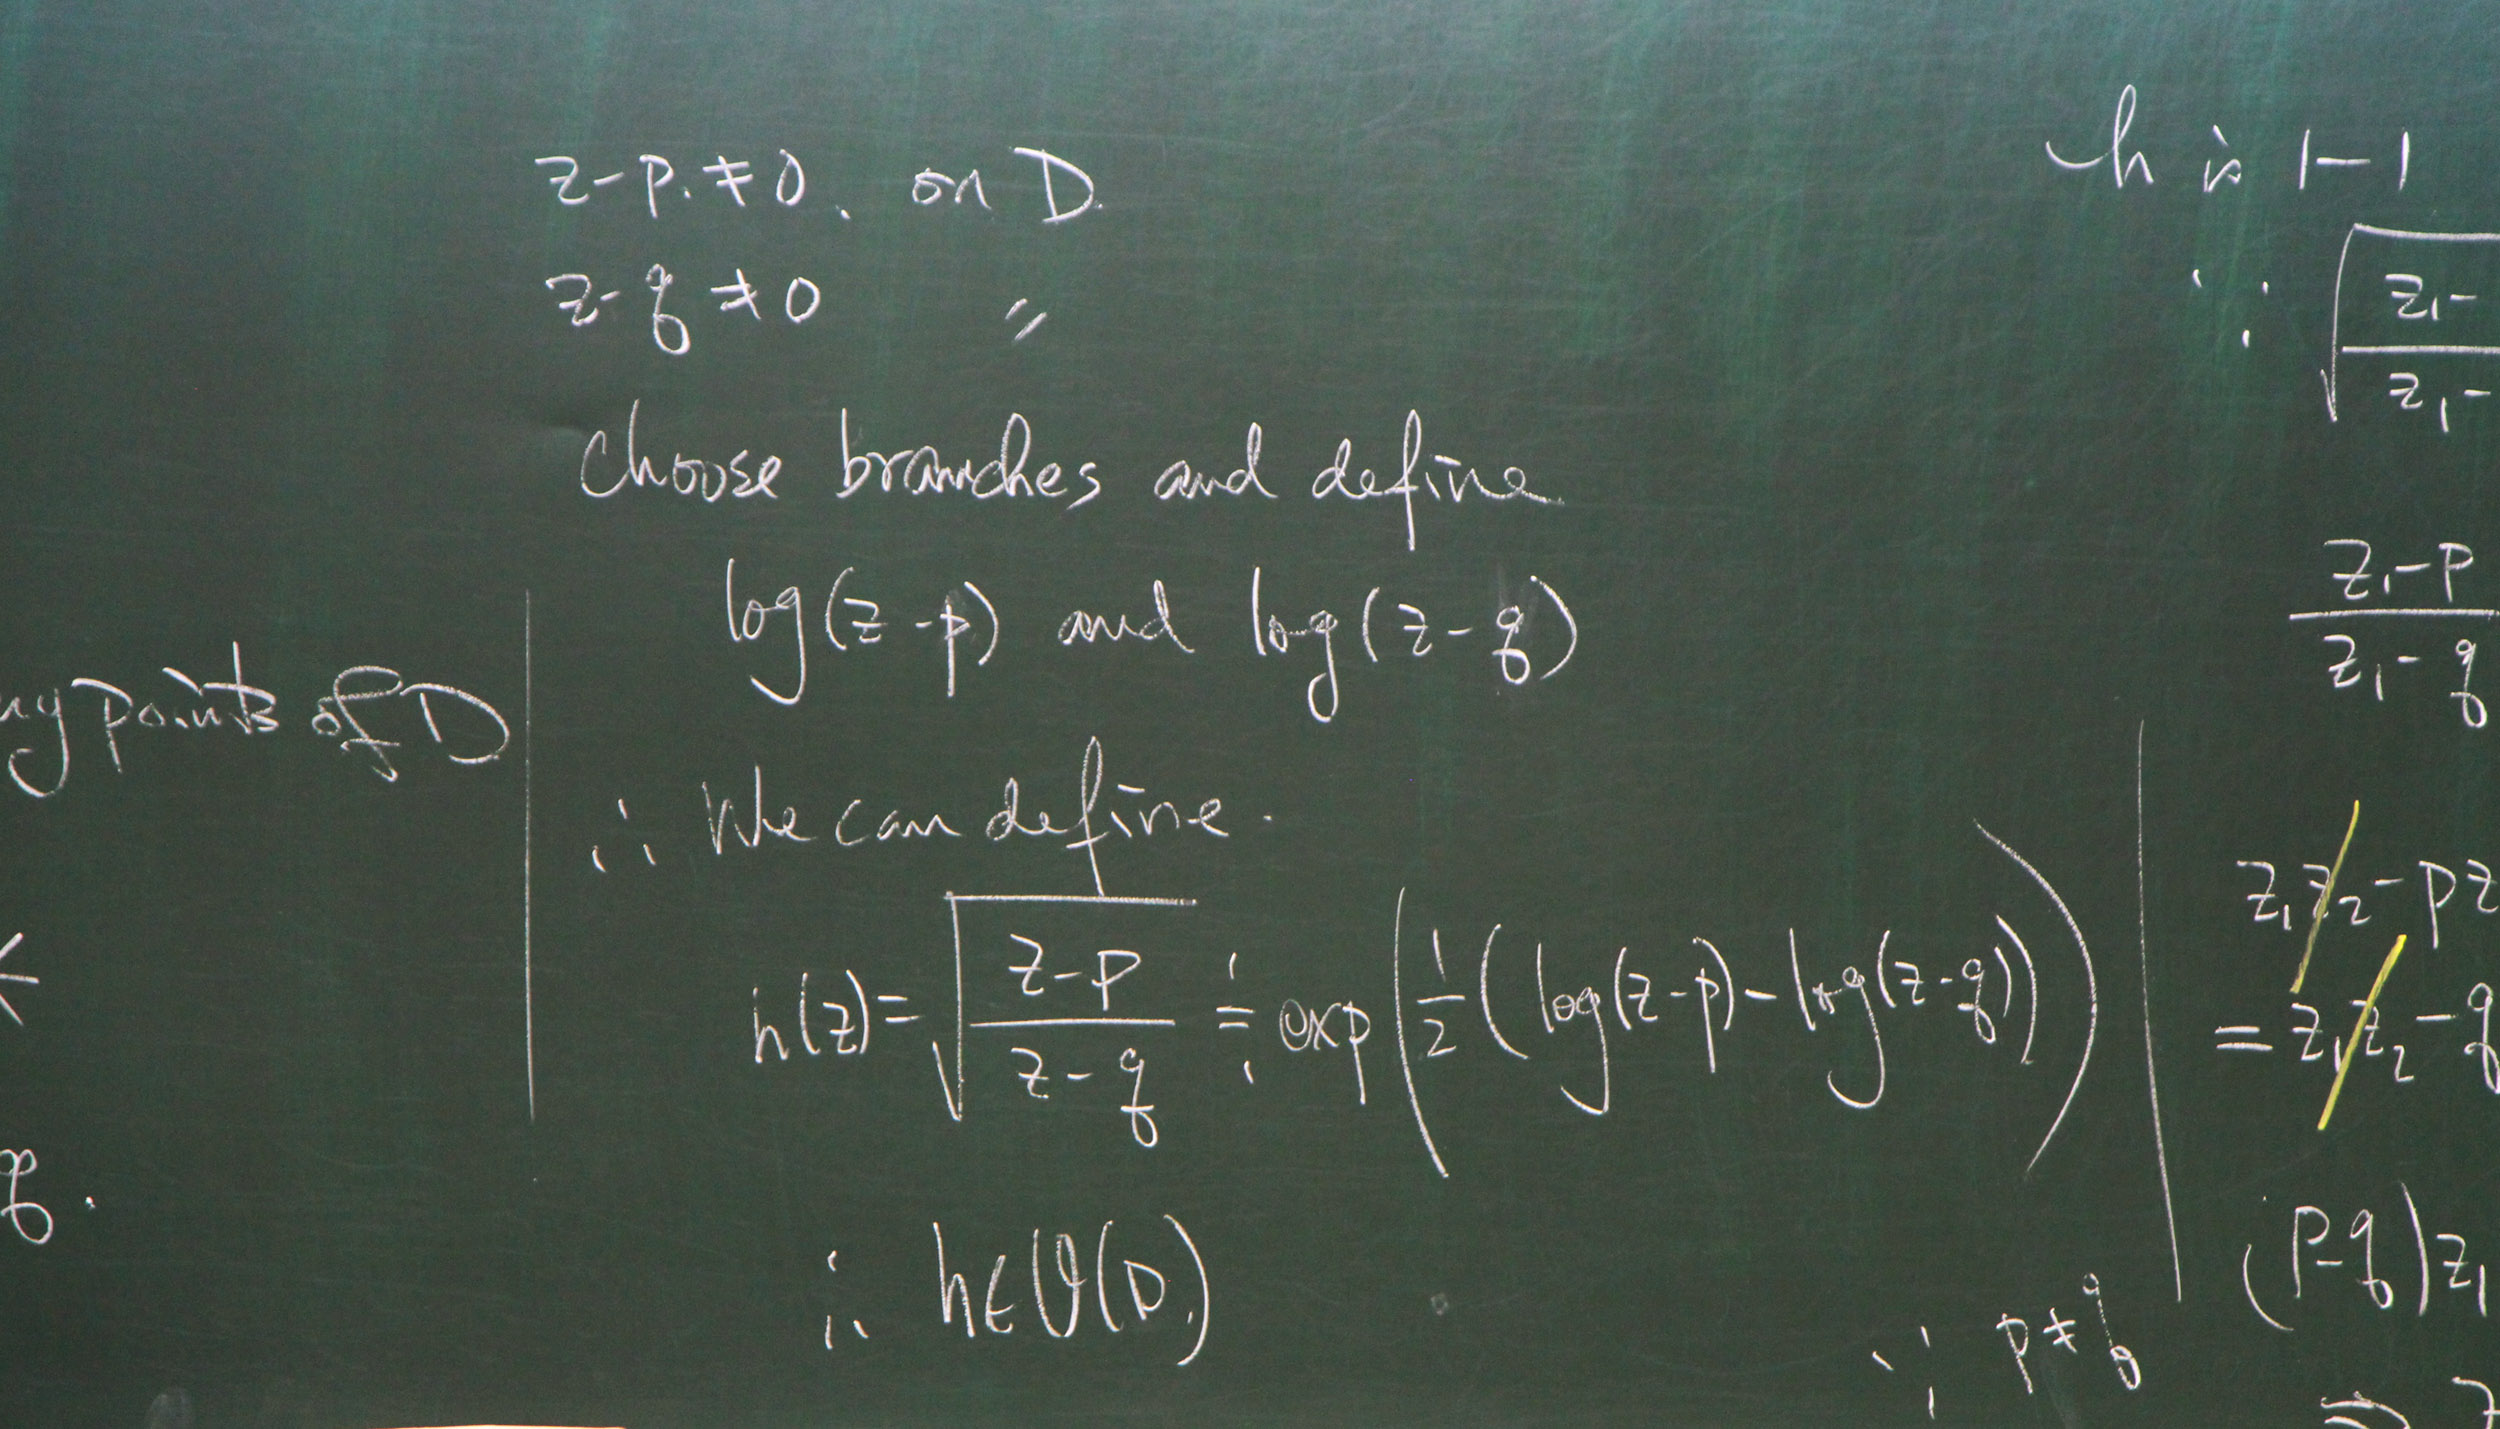 ny points of D
<
q.
z-p. ≠ 0, on D.
z-q ≠ 0 〃
Choose branches and define
log(z-p) and log(z-q)
∴ We can define.
h(z) = √((z-p)/(z-q)) ≑ exp(1/2(log(z-p) - log(z-q)))
∴ h∈O(D)
h is 1-1
∵ √(z₁-/z₁-
(z₁-p)/(z₁-q)
z₁z₂ - pz
= z₁z₂ - q
(p-q)z₁
∵ p≠q
⇒ z